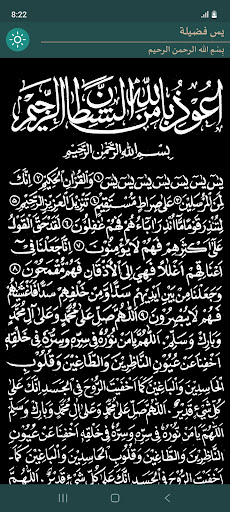 8:22
يس فضيلة
بِسْمِ اللهِ الرحمن الرحيم
اعوذ بالله من الشيطان الرجيم
بِسْمِ اللهِ الرَّحْمٰنِ الرَّحِيْمِ
يس يس يس يس يس يس يس وَالْقُرْاٰنِ الْحَكِيْمِ اِنَّكَ
لَمِنَ الْمُرْسَلِيْنَ عَلٰى صِرَاطٍ مُسْتَقِيْمٍ تَنْزِيْلَ الْعَزِيْزِ الرَّحِيْمِ
لِتُنْذِرَ قَوْمًا مَّا اُنْذِرَ اٰبَاؤُهُمْ فَهُمْ غٰفِلُوْنَ لَقَدْ حَقَّ الْقَوْلُ
عَلٰى اَكْثَرِهِمْ فَهُمْ لَا يُؤْمِنُوْنَ اِنَّا جَعَلْنَا فِيْ
اَعْنَاقِهِمْ اَغْلٰلًا فَهِيَ اِلَى الْاَذْقَانِ فَهُمْ مُقْمَحُوْنَ
وَجَعَلْنَا مِنْ بَيْنِ اَيْدِيْهِمْ سَدًّا وَمِنْ خَلْفِهِمْ سَدًّا فَاَغْشَيْنٰهُمْ
فَهُمْ لَا يُبْصِرُوْنَ اَللّٰهُمَّ صَلِّ عَلٰى مُحَمَّدٍ وَعَلٰى اٰلِ مُحَمَّدٍ
وَبَارِكْ وَسَلِّمْ اَللّٰهُمَّ يَا مَنْ نُوْرُهُ فِيْ سِرِّهِ وَسِرُّهُ فِيْ خَلْقِهِ
اَخْفِنَا عَنْ عُيُوْنِ النَّاظِرِيْنَ وَالطَّاغِيْنَ وَقُلُوْبِ
الْحَاسِدِيْنَ وَالْبَاغِيْنَ كَمَا اَخْفَيْتَ الرُّوْحَ فِي الْجَسَدِ اِنَّكَ عَلٰى
كُلِّ شَيْءٍ قَدِيْرٌ اَللّٰهُمَّ صَلِّ عَلٰى مُحَمَّدٍ وَعَلٰى اٰلِ مُحَمَّدٍ وَبَارِكْ وَسَلِّمْ
اَللّٰهُمَّ يَا مَنْ نُوْرُهُ فِيْ سِرِّهِ وَسِرُّهُ فِيْ خَلْقِهِ اَخْفِنَا عَنْ عُيُوْنِ
النَّاظِرِيْنَ وَالطَّاغِيْنَ وَقُلُوْبِ الْحَاسِدِيْنَ وَالْبَاغِيْنَ كَمَا
اَخْفَيْتَ الرُّوْحَ فِي الْجَسَدِ اِنَّكَ عَلٰى كُلِّ شَيْءٍ قَدِيْرٌ